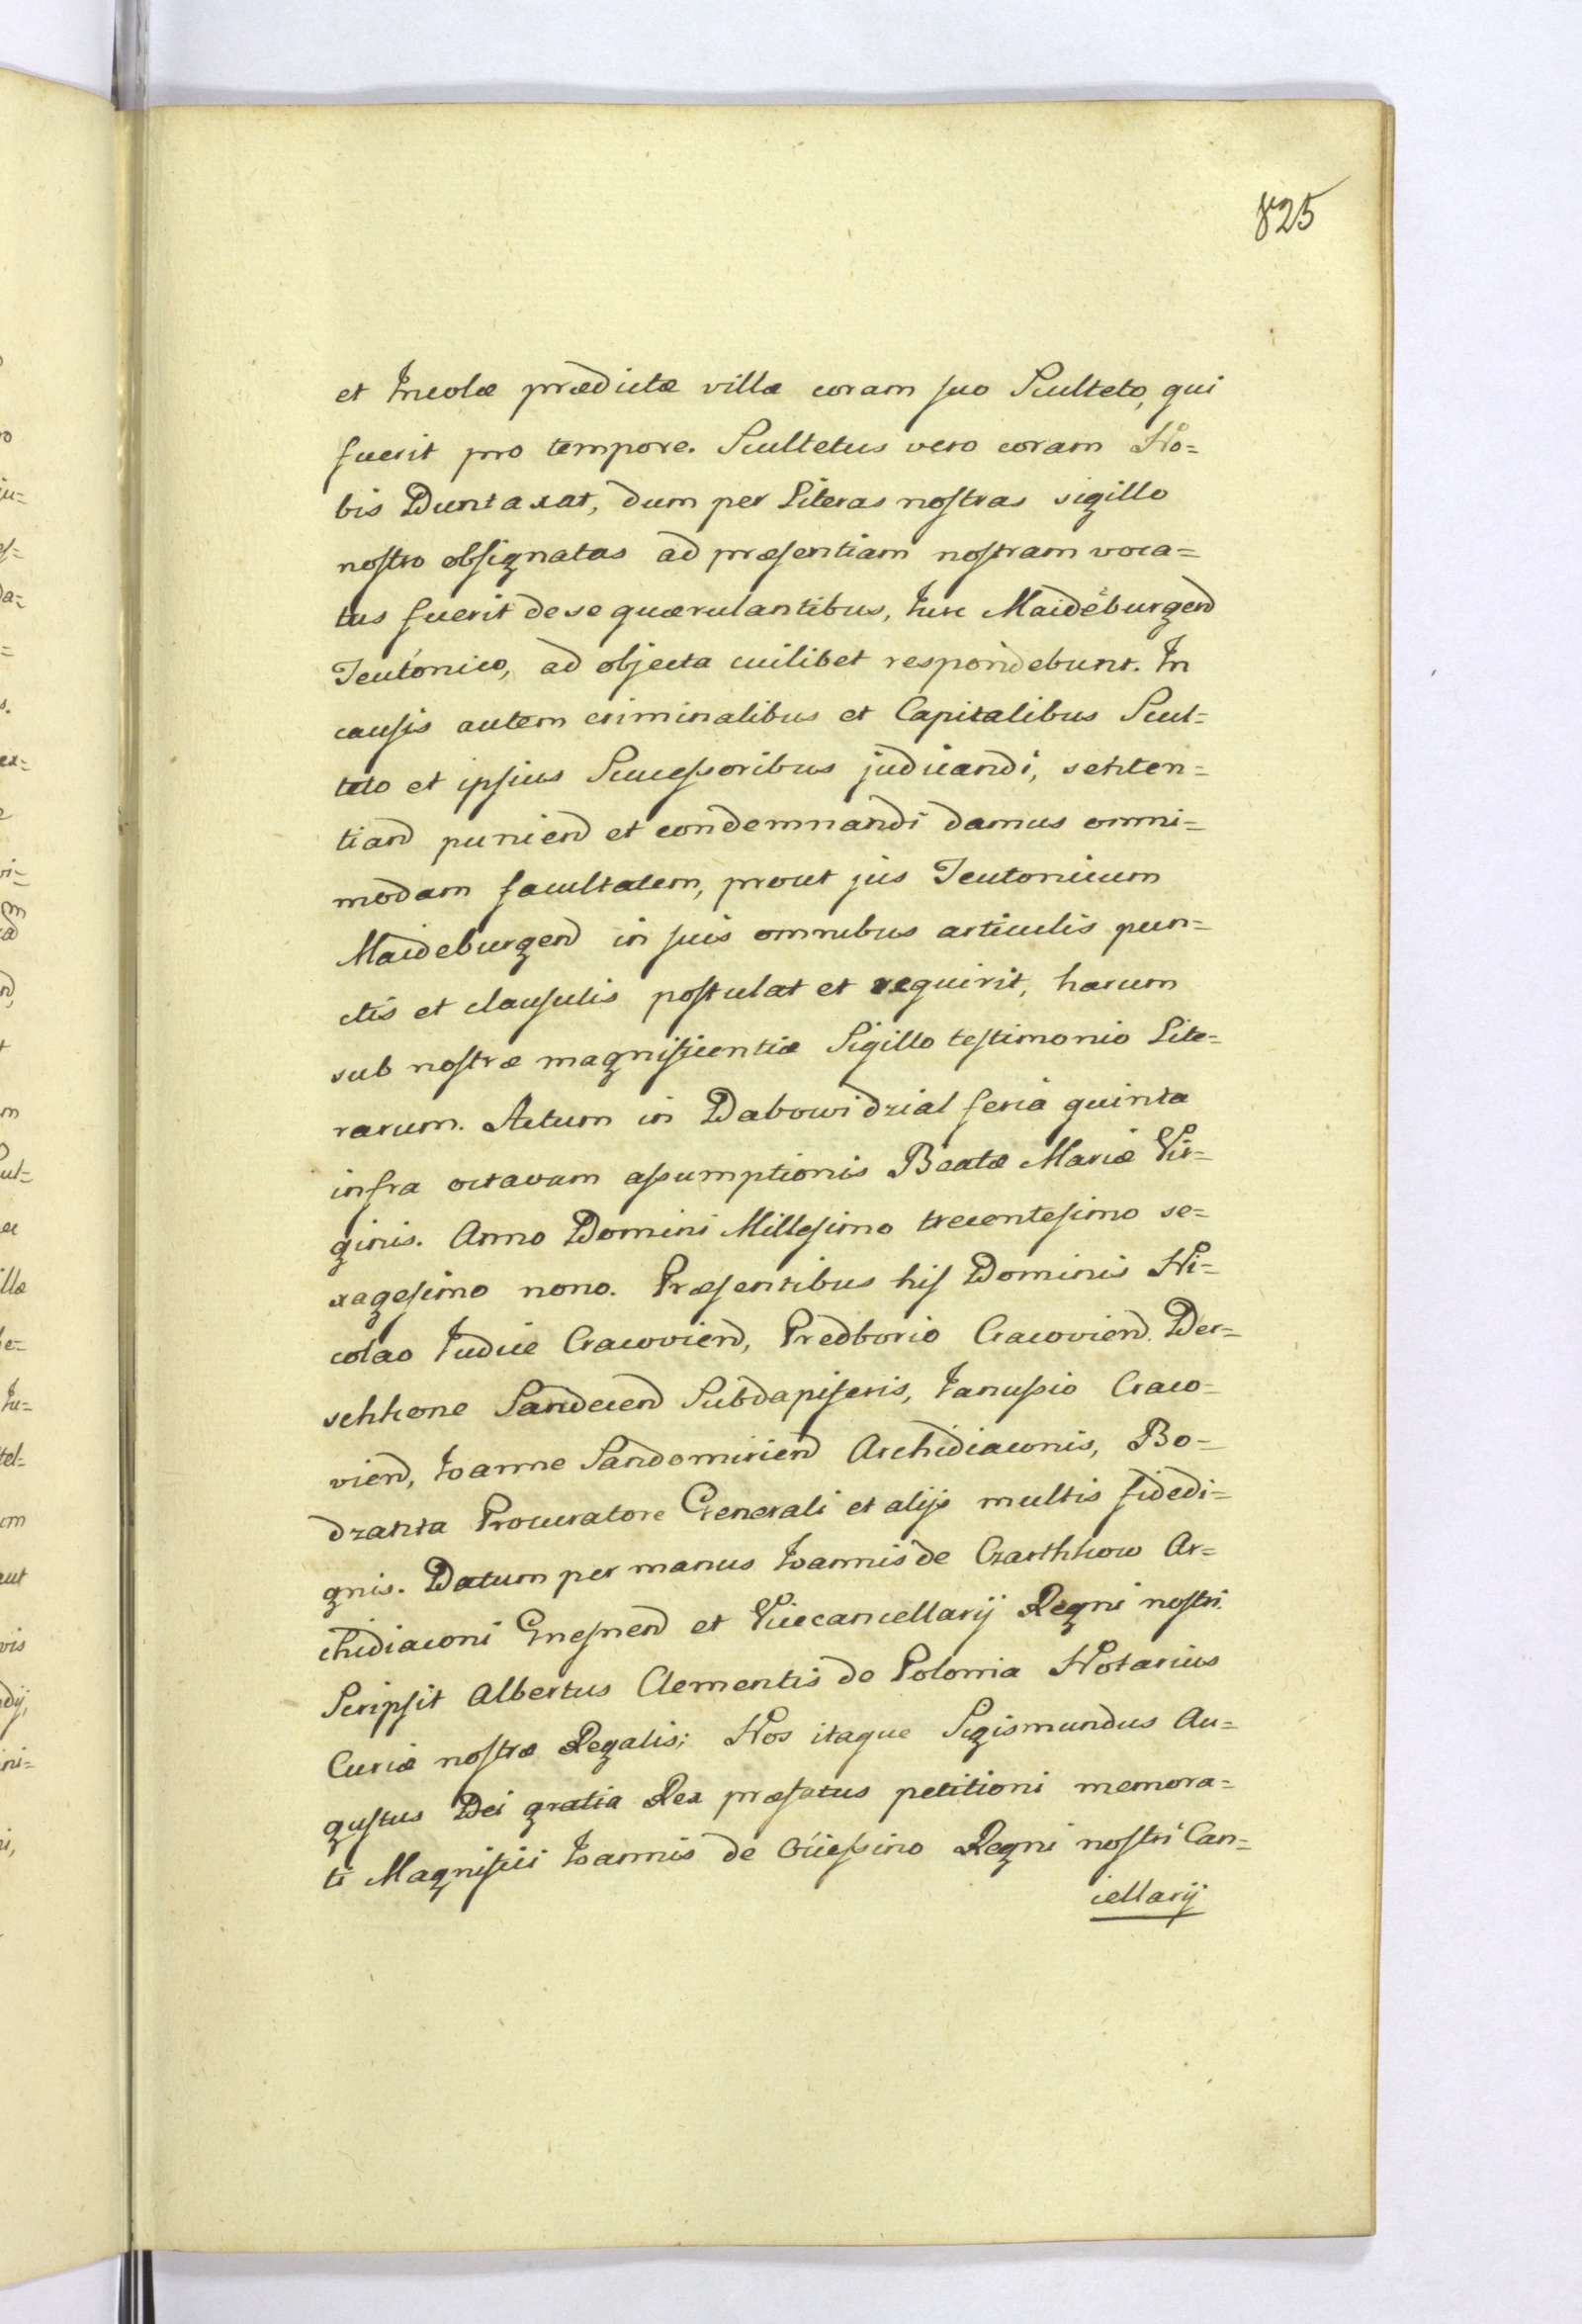 825
et Incolæ prædictæ villæ coram suo Sculteto, qui
fuerit pro tempore. Scultetus vero coram No=
bis Duntaxat, dum per Literas nostras sigillo
nostro obsignatas ad præsentiam nostram voca=
tus fuerit de se quærulantibus, Iure Maideburgen
Teutonico, ad objecta cuilibet respondebunt. In
causis autem criminalibus et Capitalibus Scul=
teto et ipsius Successoribus judicandi, senten=
tian punien et condemnandi damus omni=
modam facultatem, prout jus Teutonicum
Maideburgen in suis omnibus articulis pun=
ctis et clausulis postulat et requirit, harum
sub nostræ magnificentiæ Sigillo testimonio Lite=
rarum. Actum in Dabowidzial feria quinta
infra octavam assumptionis Beatæ Mariæ Vir=
ginis. Anno Domini Millesimo trecentesimo se=
xagesimo nono. Præsentibus his Dominis Ni=
colao Iudice Cracovien, Predborio Cracovien. Der=
schkone Sandecen Subdapiferis, Ianussio Craco=
vien, Ioanne Sandomirien Archidiaconis, Bo=
dzanta Procuratore Generali et alijs multis fidedi=
gnis. Datum per manus Ioannis de Czarthkow Ar=
chidiaconi Gnesnen et Vicecancellarij Regni nostri.
Scripsit Albertus Clementis de Polonia Notarius
Curiæ nostræ Regalis; Nos itaque Sigismundus Au=
gustus Dei gratia Rex præfatus petitioni memora=
ti Magnifici Ioannis de Ociessino Regni nostri Can=
cellarij